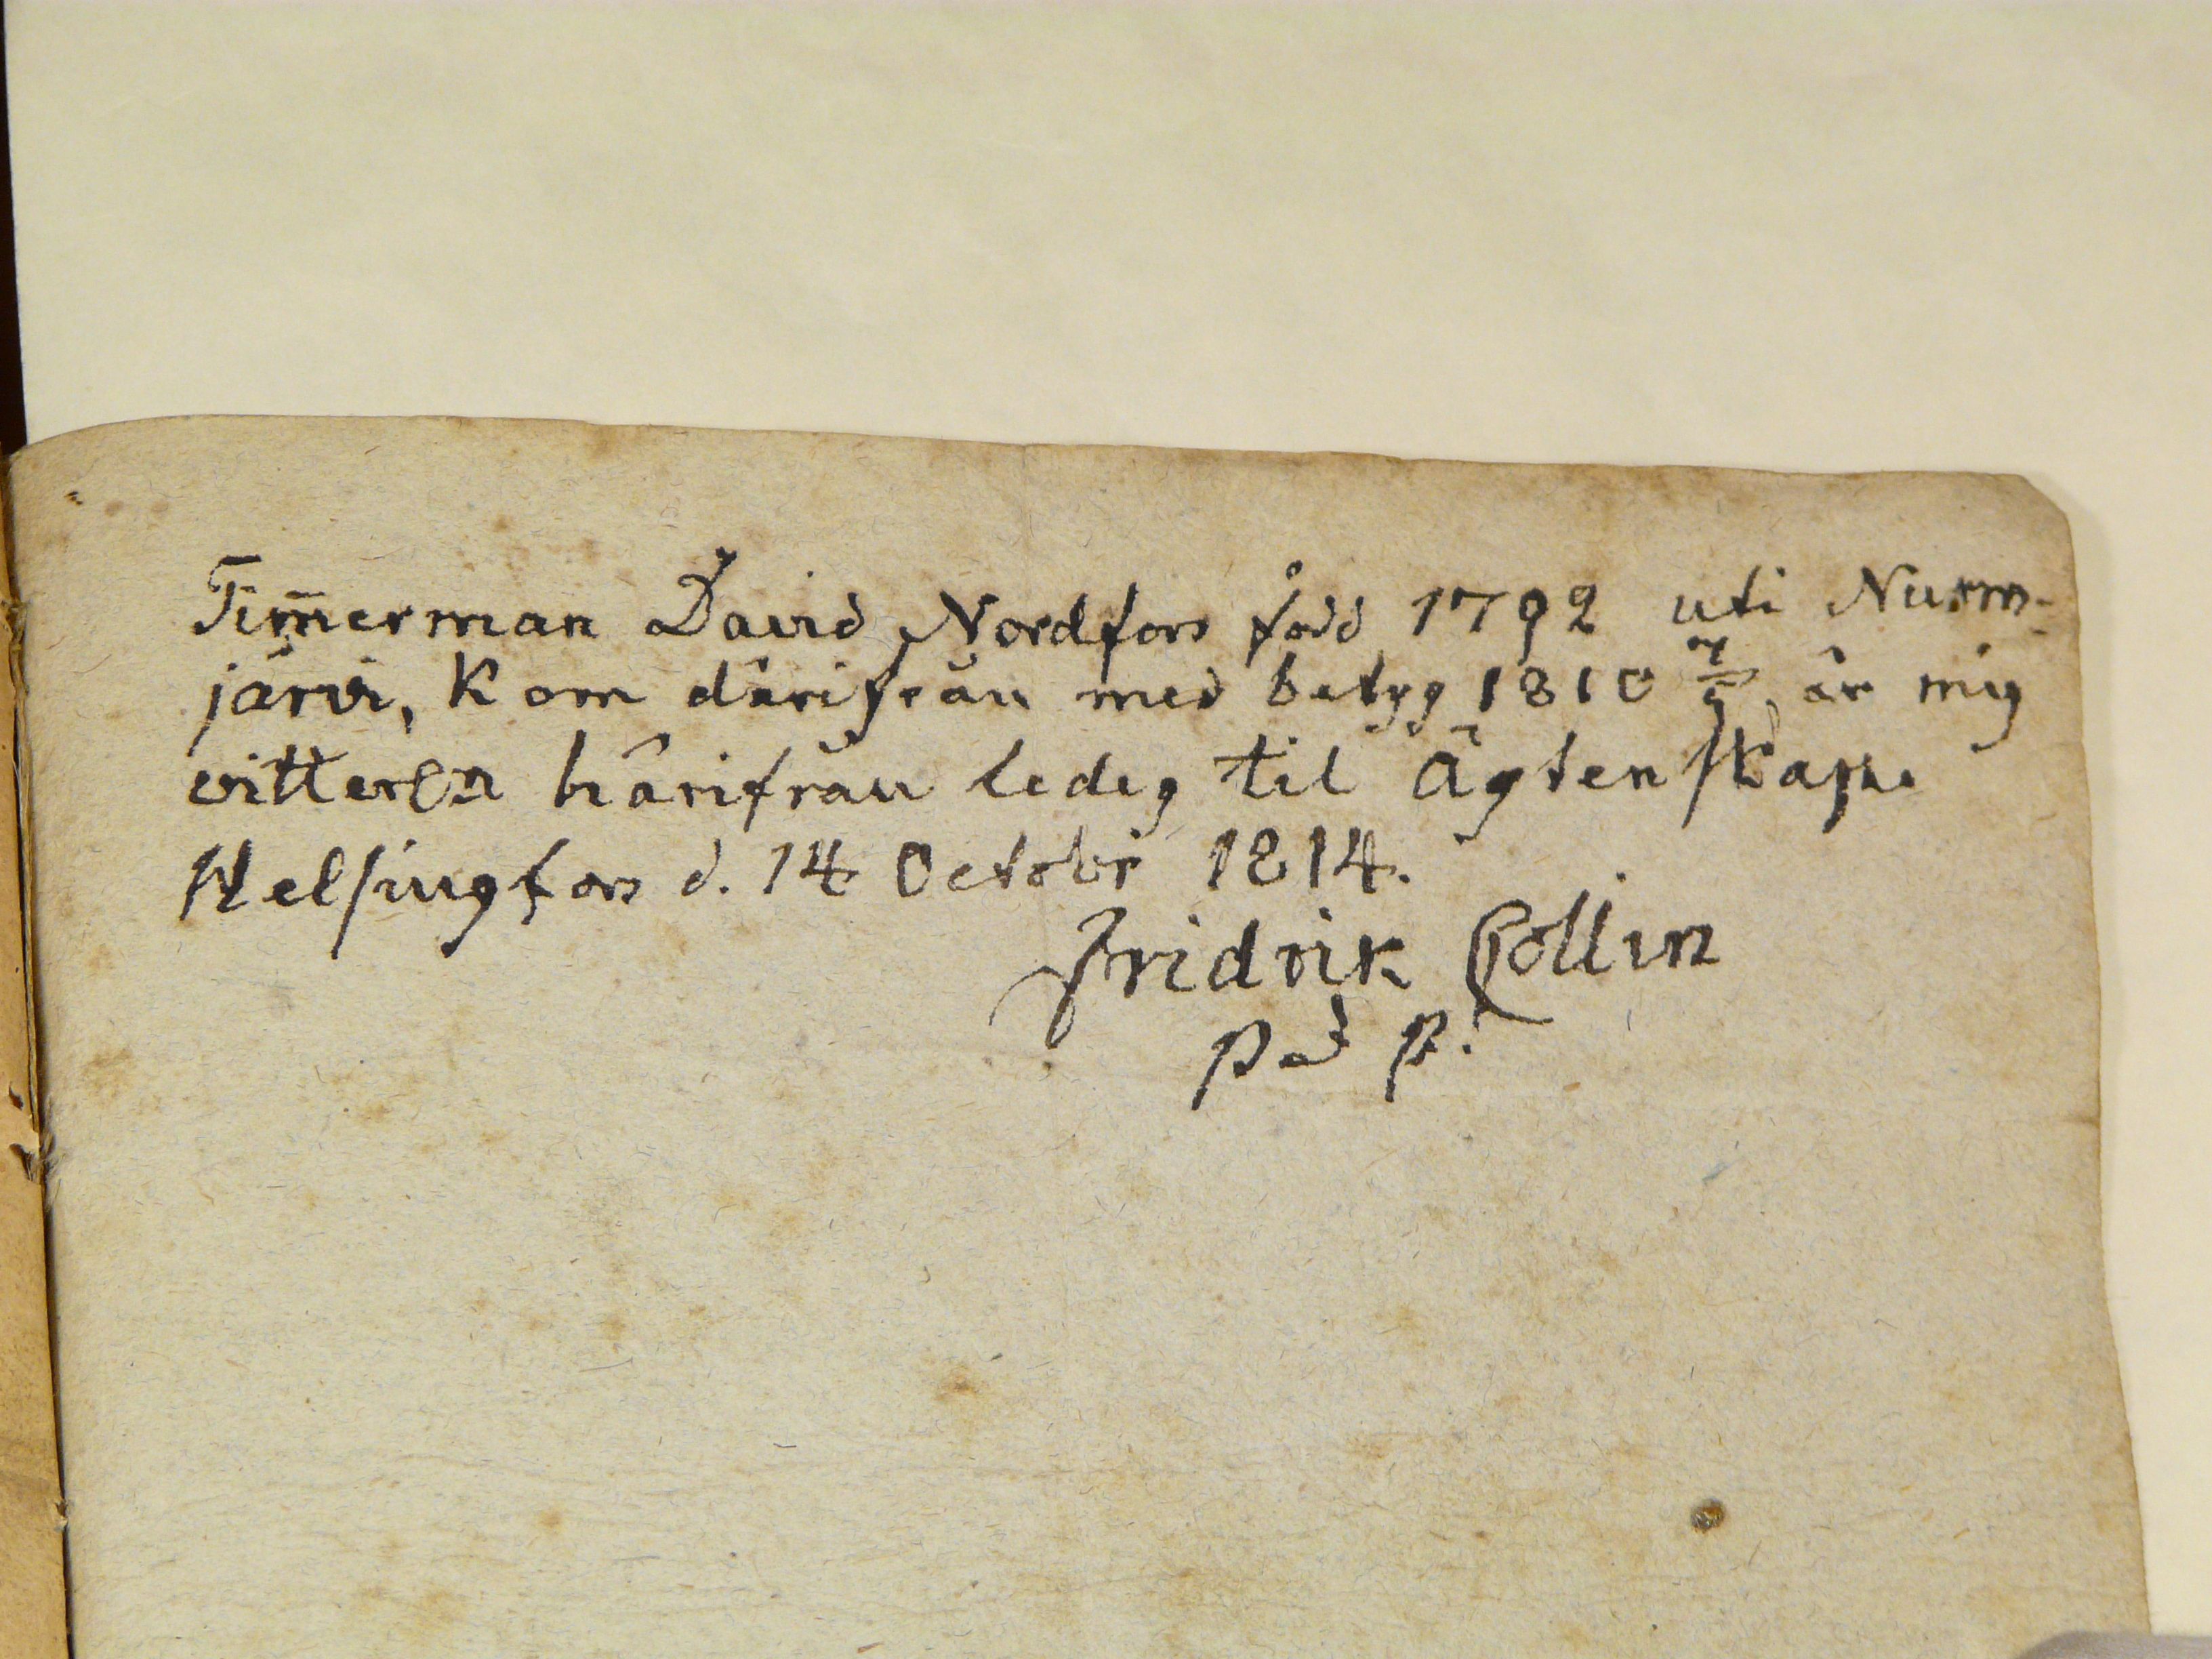 Tim̅erman David Nordfors född 1792 uti Nurm-
järvi, kom därifrån med betyg 1810 7/9, är mig
vitterl:n härifrån ledig til Ägtenskap.
Helsingfors d. 14 Octobr 1814.
Fridrik Collin
P.